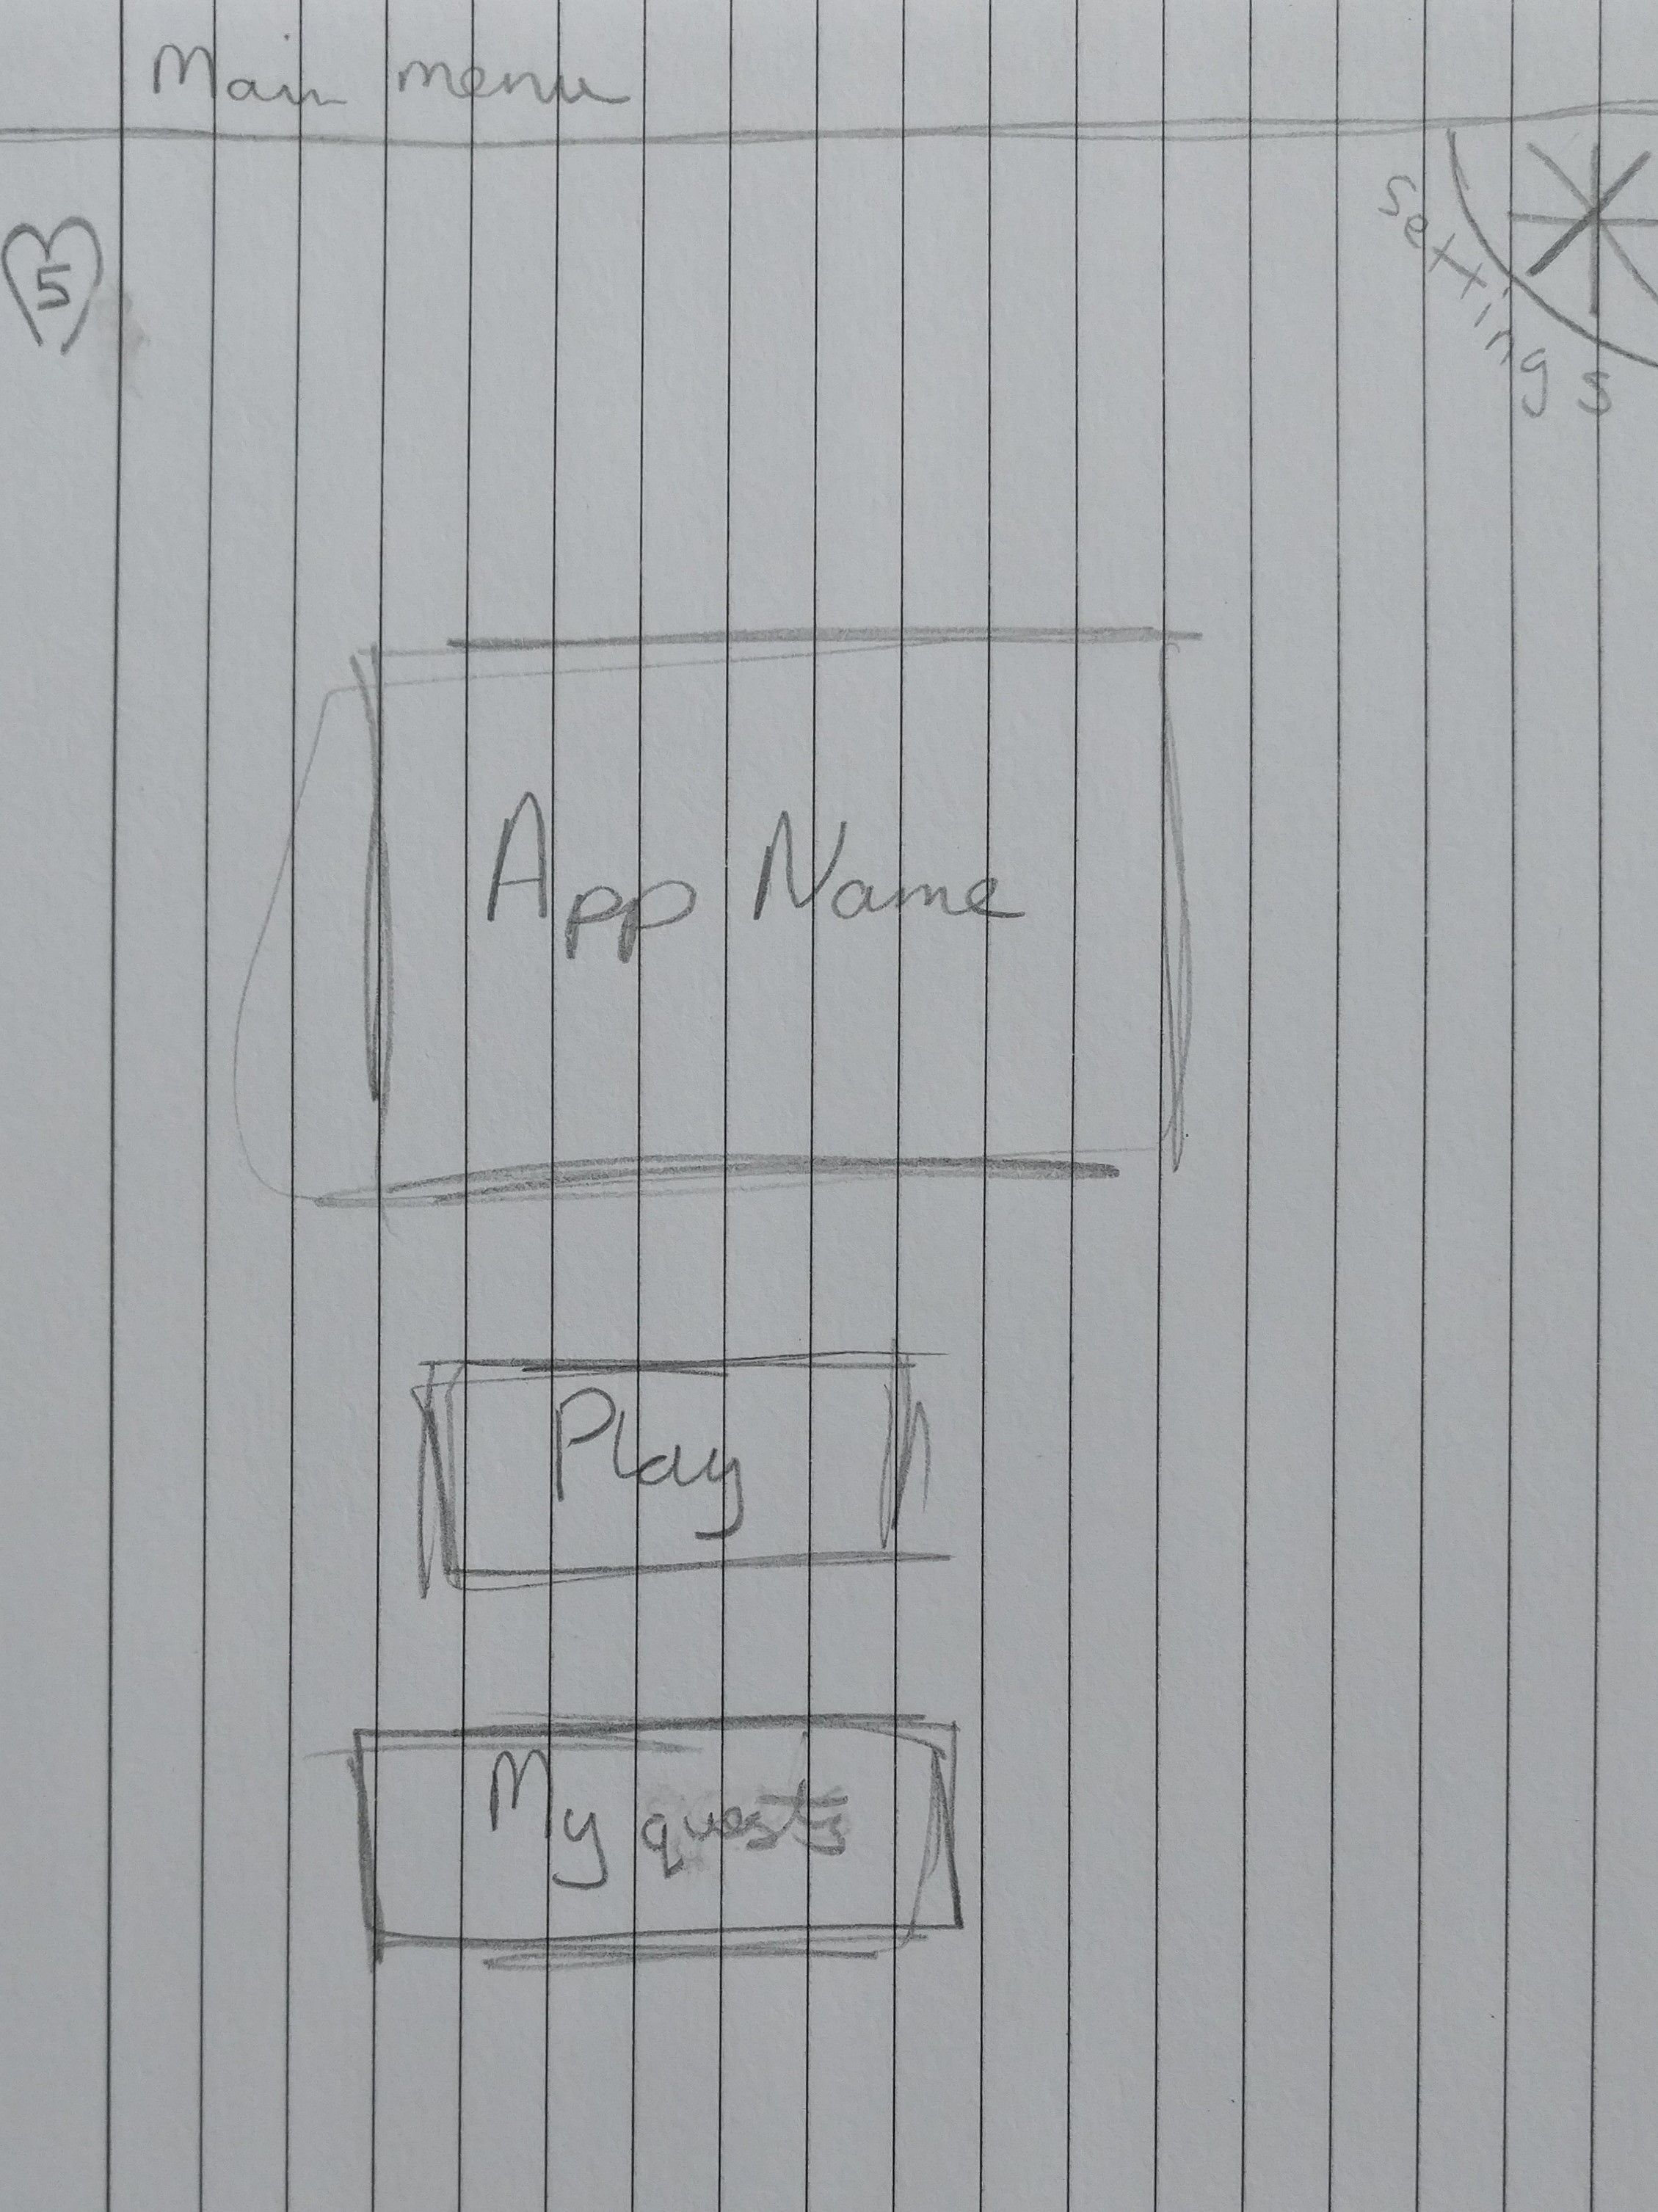 Main menu
5
settings
App Name
Play
My quests